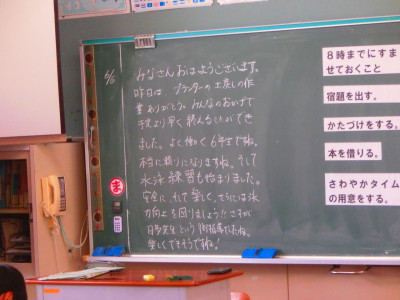 6/6
みなさんおはようございます。
昨日は プランターの土戻しの作
業ありがとう。みんなのおかげで
予定より早く終えることができ
ました。よく働く6年生ですね。
本当に頼りになりますね。そして
水泳練習も始まりました。
安全に、そして楽しく、さらには泳
力向上を図りましょう。
日 先生という
楽しくできそうですね!
ま
8時までにすま
せておくこと
宿題を出す。
かたづけをする。
本を借りる。
さわやかタイム
の用意をする。